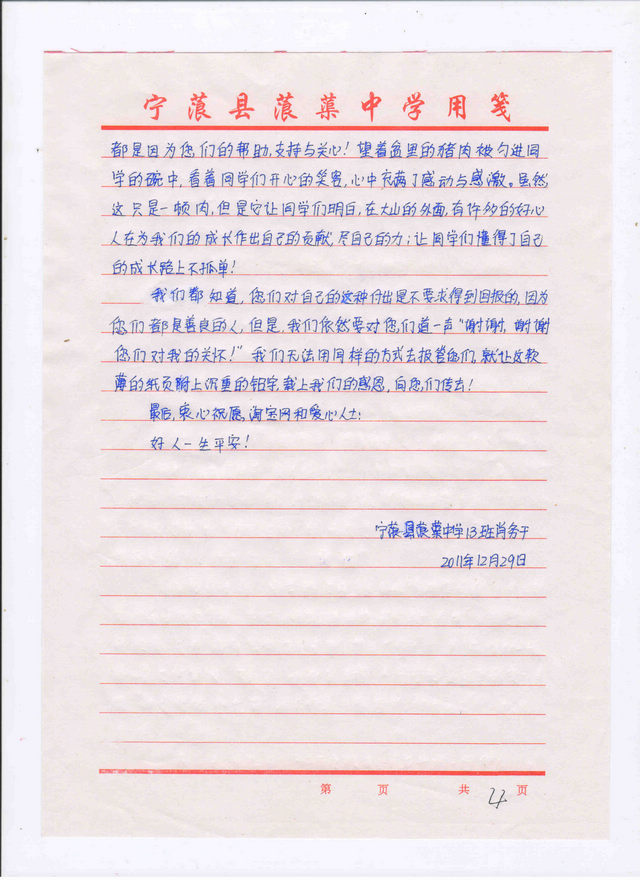 宁蒗县蒗蕖中学用笺
都是因为您们的帮助,支持与关心！望着盆里的猪肉被勺进同
学的碗中,看着同学们开心的笑容,心中充满了感动与感激。虽然
这只是一顿肉,但是它让同学们明白,在大山的外面,有许多的好心
人在为我们的成长作出自己的贡献,尽自己的力；让同学们懂得了自己
的成长路上不孤单！
我们都知道,您们对自己的这种付出是不要求得到回报的,因为
您们都是善良的人,但是,我们依然要对您们道一声“谢谢,谢谢
您们对我的关怀！”我们无法用同样的方式去报答您们,就让这软
薄的纸页附上沉重的铅字,载上我们的感恩,向您们传去！
最后,衷心祝愿,淘宝网和爱心人士:
好人一生平安！
宁蒗县蒗蕖中学13班肖务干
2011年12月29日
第 页 共 4 页